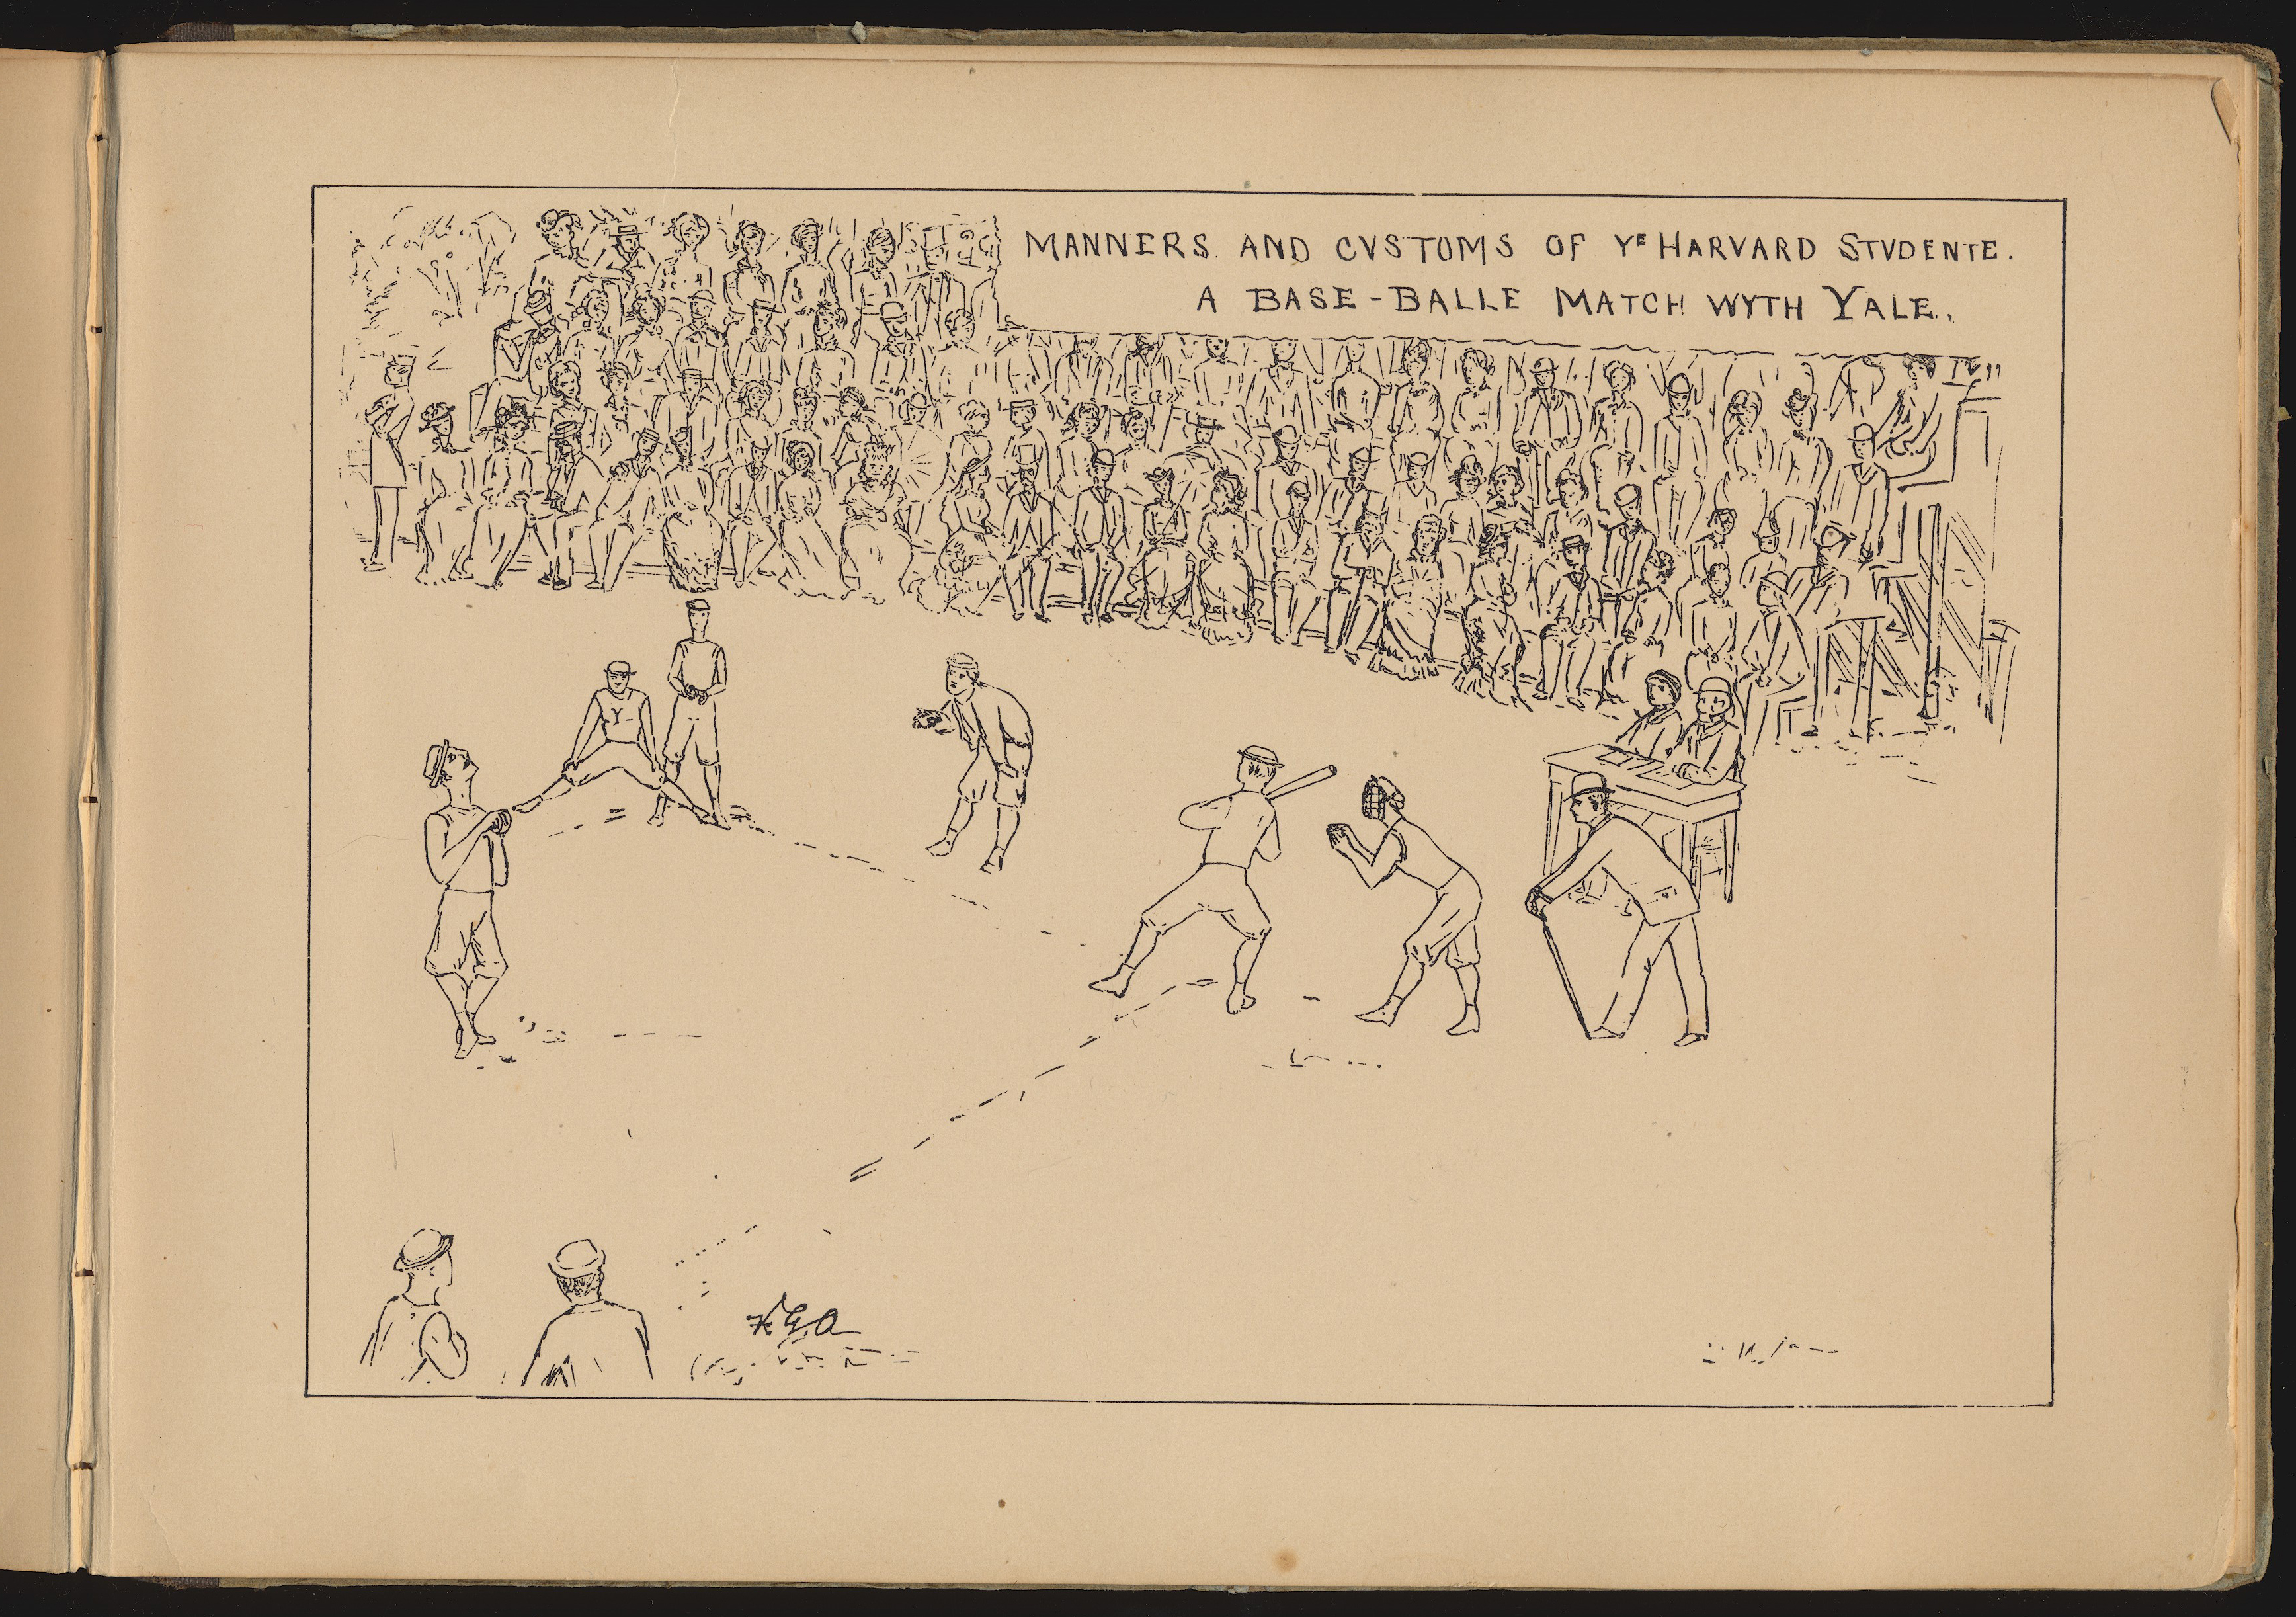 MANNERS AND CVSTOMS OF YE HARVARD STVDENTE.
A BASE-BALLE MATCH WYTH YALE.
Y
F.G.A